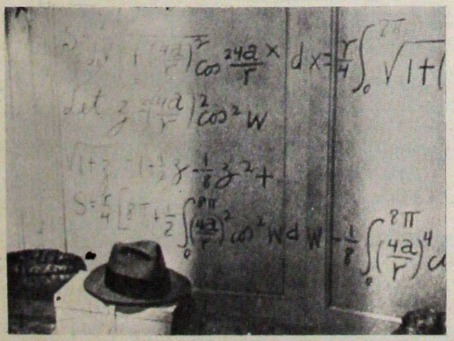 S = ∫ √(1+(4a/r)² cos² 4a/r x dx = r/4 ∫₀^8π √1+(
Let z = (4a/r)² cos² w
√1+z = 1+½z-⅛z²+
S = r/4 [8π+½ ∫₀^8π (4a/r)² cos² w d w -⅛ ∫₀^8π (4a/r)⁴ c